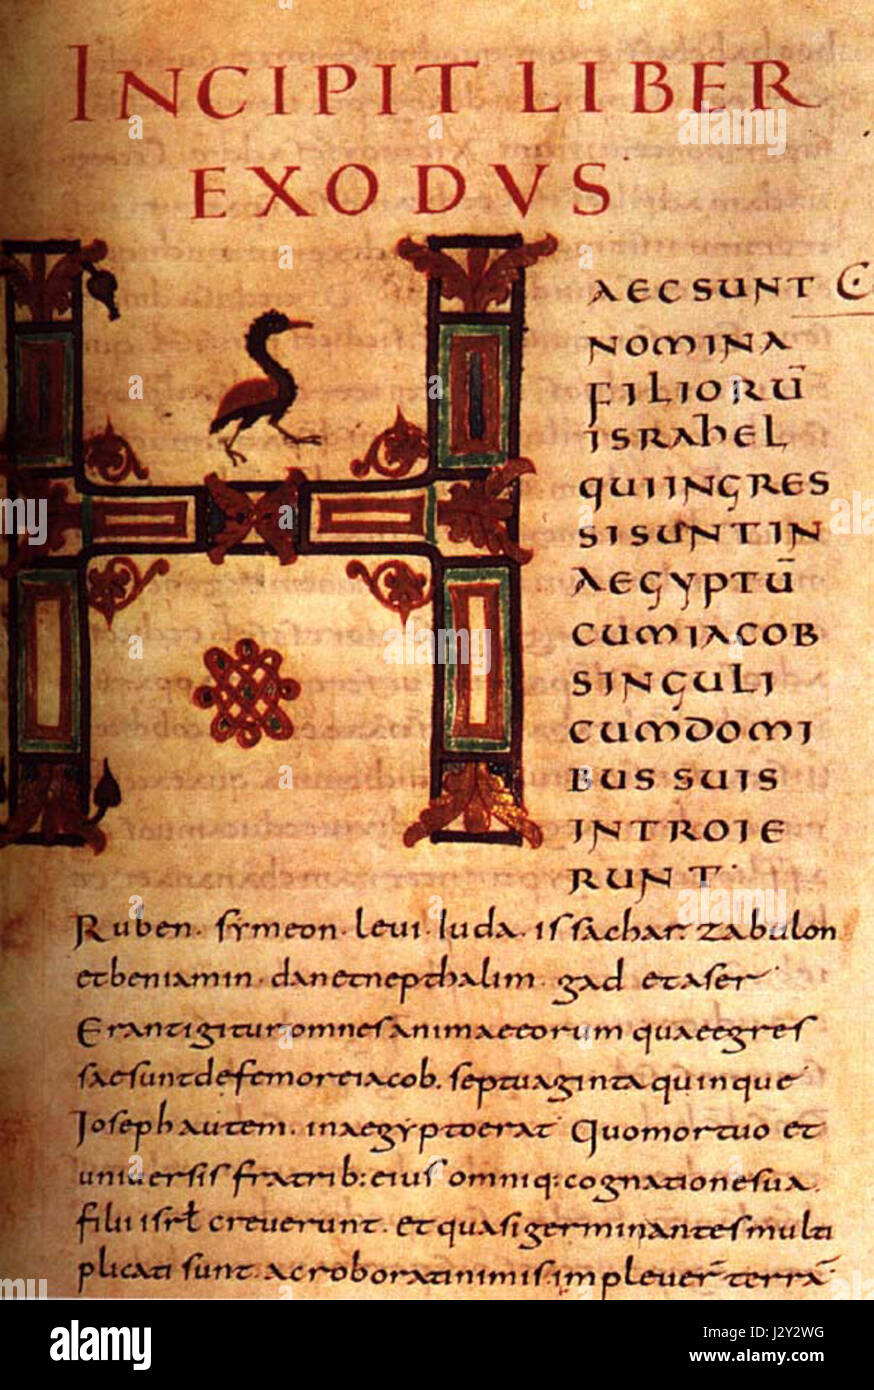 INCIPIT LIBER
EXODVS
HAEC SUNT
NOMINA
FILIORŪ
ISRAHEL
QUI INGRES
SI SUNT IN
AEGYPTŪ
CUM IACOB
SINGULI
CUM DOMI
BUS SUIS
INTROIE
RUNT·
Ruben· symeon· leui· Iuda· issachar· zabulon
et beniamin· dan et nepthalim· gad et aser
Erant igitur omnes animae eorum quae egres
sae sunt de femore iacob· septuaginta quinque
Ioseph autem· in aegypto erat Quo mortuo et
uniuersis fratrib: eius omniq: cognatione sua·
filii isrł creuerunt· et quasi germinantes multi
plicati sunt· ac roborati nimis· impleuer̄ terrā·
alamy
Image ID: J2Y2WG
www.alamy.com